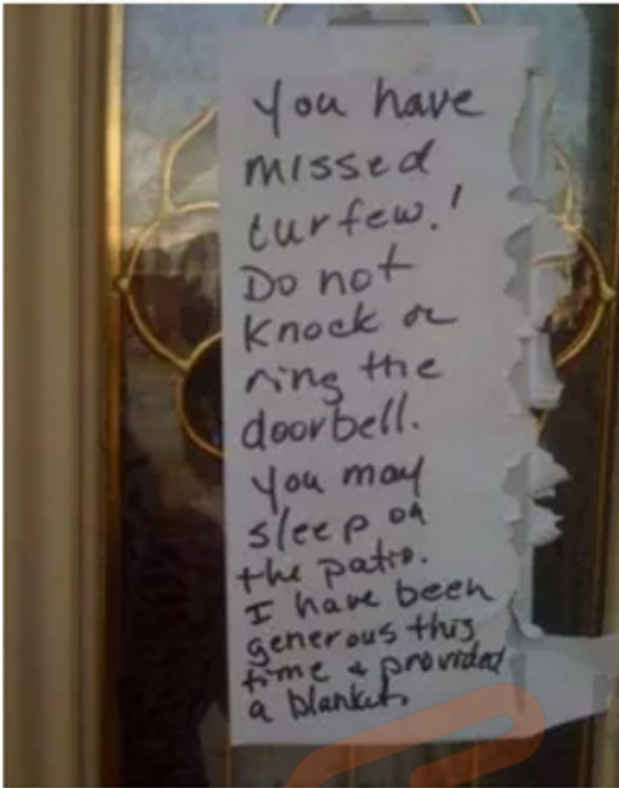 You have
missed
curfew.!
Do not
Knock or
ring the
doorbell.
You may
sleep on
the patio.
I have been
generous this
time & provided
a blanket.